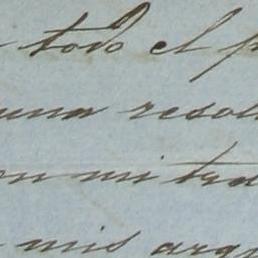 todo el p
una resol
en mi tra
mis arg